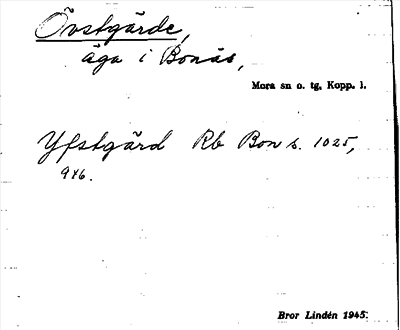 Övstgärde,
äga i Bonäs,
Mora sn o. tg. Kopp. l.
Yfstgärd Rb Bon s. 1025,
946.
Bror Lindén 1945.